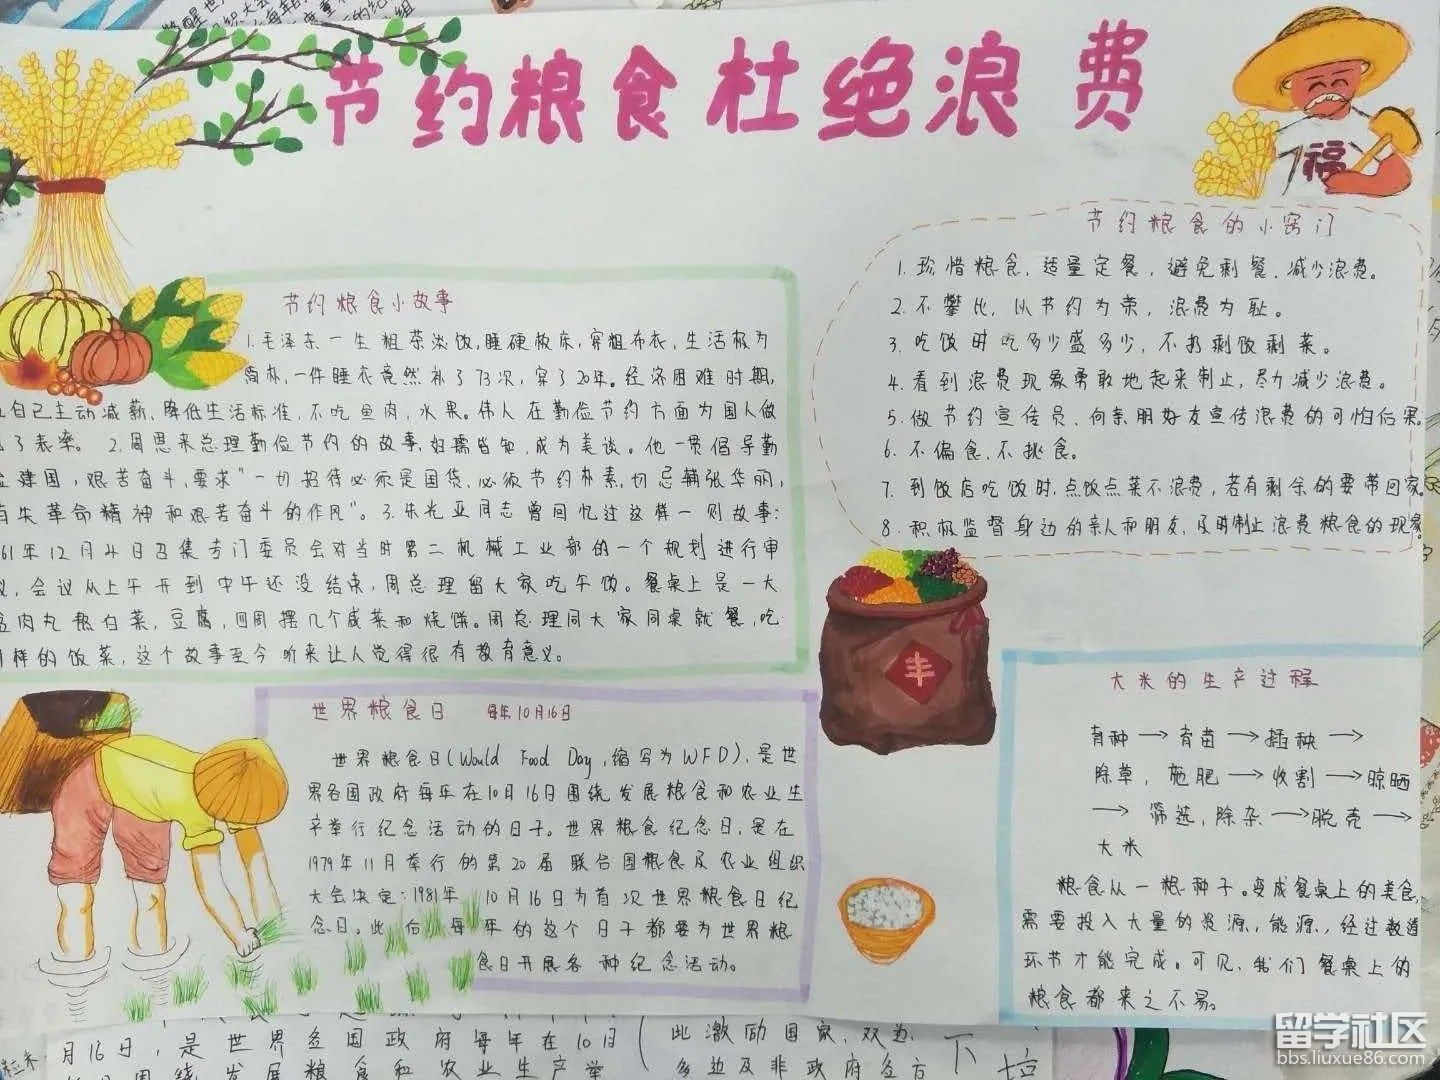 节约粮食杜绝浪费
福
节约粮食小故事
1.毛泽东一生粗茶淡饭,睡硬板床,穿粗布衣,生活极为
简朴,一件睡衣竟然补了73次,穿了20年。经济困难时期,
自己主动减薪、降低生活标准,不吃鱼肉,水果。伟人在勤俭节约方面为国人做
了表率。2.周恩来总理勤俭节约的故事,妇孺皆知,成为美谈。他一贯倡导勤
建国,艰苦奋斗,要求"一切招待必须是国货,必须节约朴素,切忌铺张华丽,
有失革命精神和艰苦奋斗的作风"。3.朱光亚同志曾回忆过这样一则故事:
61年12月4日召集专门委员会对当时第二机械工业部的一个规划进行审
议,会议从上午开到中午还没结束,周总理留大家吃午饭。餐桌上是一大
盆肉丸熬白菜,豆腐,四周摆几个咸菜和烧饼。周总理同大家同桌就餐,吃
同样的饭菜,这个故事至今听来让人觉得很有教育意义。
节约粮食的小窍门
1.珍惜粮食,适量定餐,避免剩餐,减少浪费。
2.不攀比,以节约为荣,浪费为耻。
3.吃饭时吃多少盛多少,不扔剩饭剩菜。
4.看到浪费现象勇敢地起来制止,尽力减少浪费。
5.做节约宣传员,向亲朋好友宣传浪费的可怕后果。
6.不偏食,不挑食。
7.到饭店吃饭时,点饭点菜不浪费,若有剩余的要带回家。
8.积极监督身边的亲人和朋友,及时制止浪费粮食的现象。
丰
世界粮食日 每年10月16日
世界粮食日(Would Food Day,缩写为WFD),是世
界各国政府每年在10月16日围绕发展粮食和农业生
产举行纪念活动的日子。世界粮食纪念日,是在
1979年11月举行的第20届联合国粮食及农业组织
大会决定:1981年10月16日为首次世界粮食日纪
念日。此后每年的这个日子都要为世界粮
食日开展各种纪念活动。
大米的生产过程
育种→育苗→插秧→
除草,施肥→收割→晾晒
→筛选,除杂→脱壳→
大米
粮食从一粒种子,变成餐桌上的美食,
需要投入大量的资源,能源,经过数道
环节才能完成。可见,我们餐桌上的
粮食都来之不易。
月16日,是世界各国政府每年在10月
围绕发展粮食和农业生产举
此激励国家,双边,
多边及非政府各方
留学社区
bbs.liuxue86.com